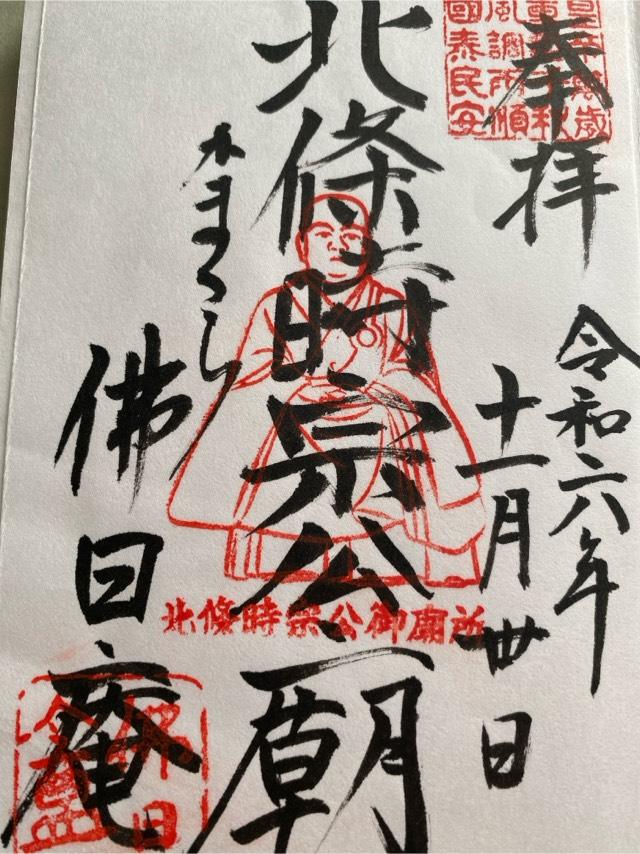 奉拝
令和六年
十一月廿日
北條時宗公廟
かまくら
佛日庵
風調雨順
國泰民安
北條時宗公御廟所